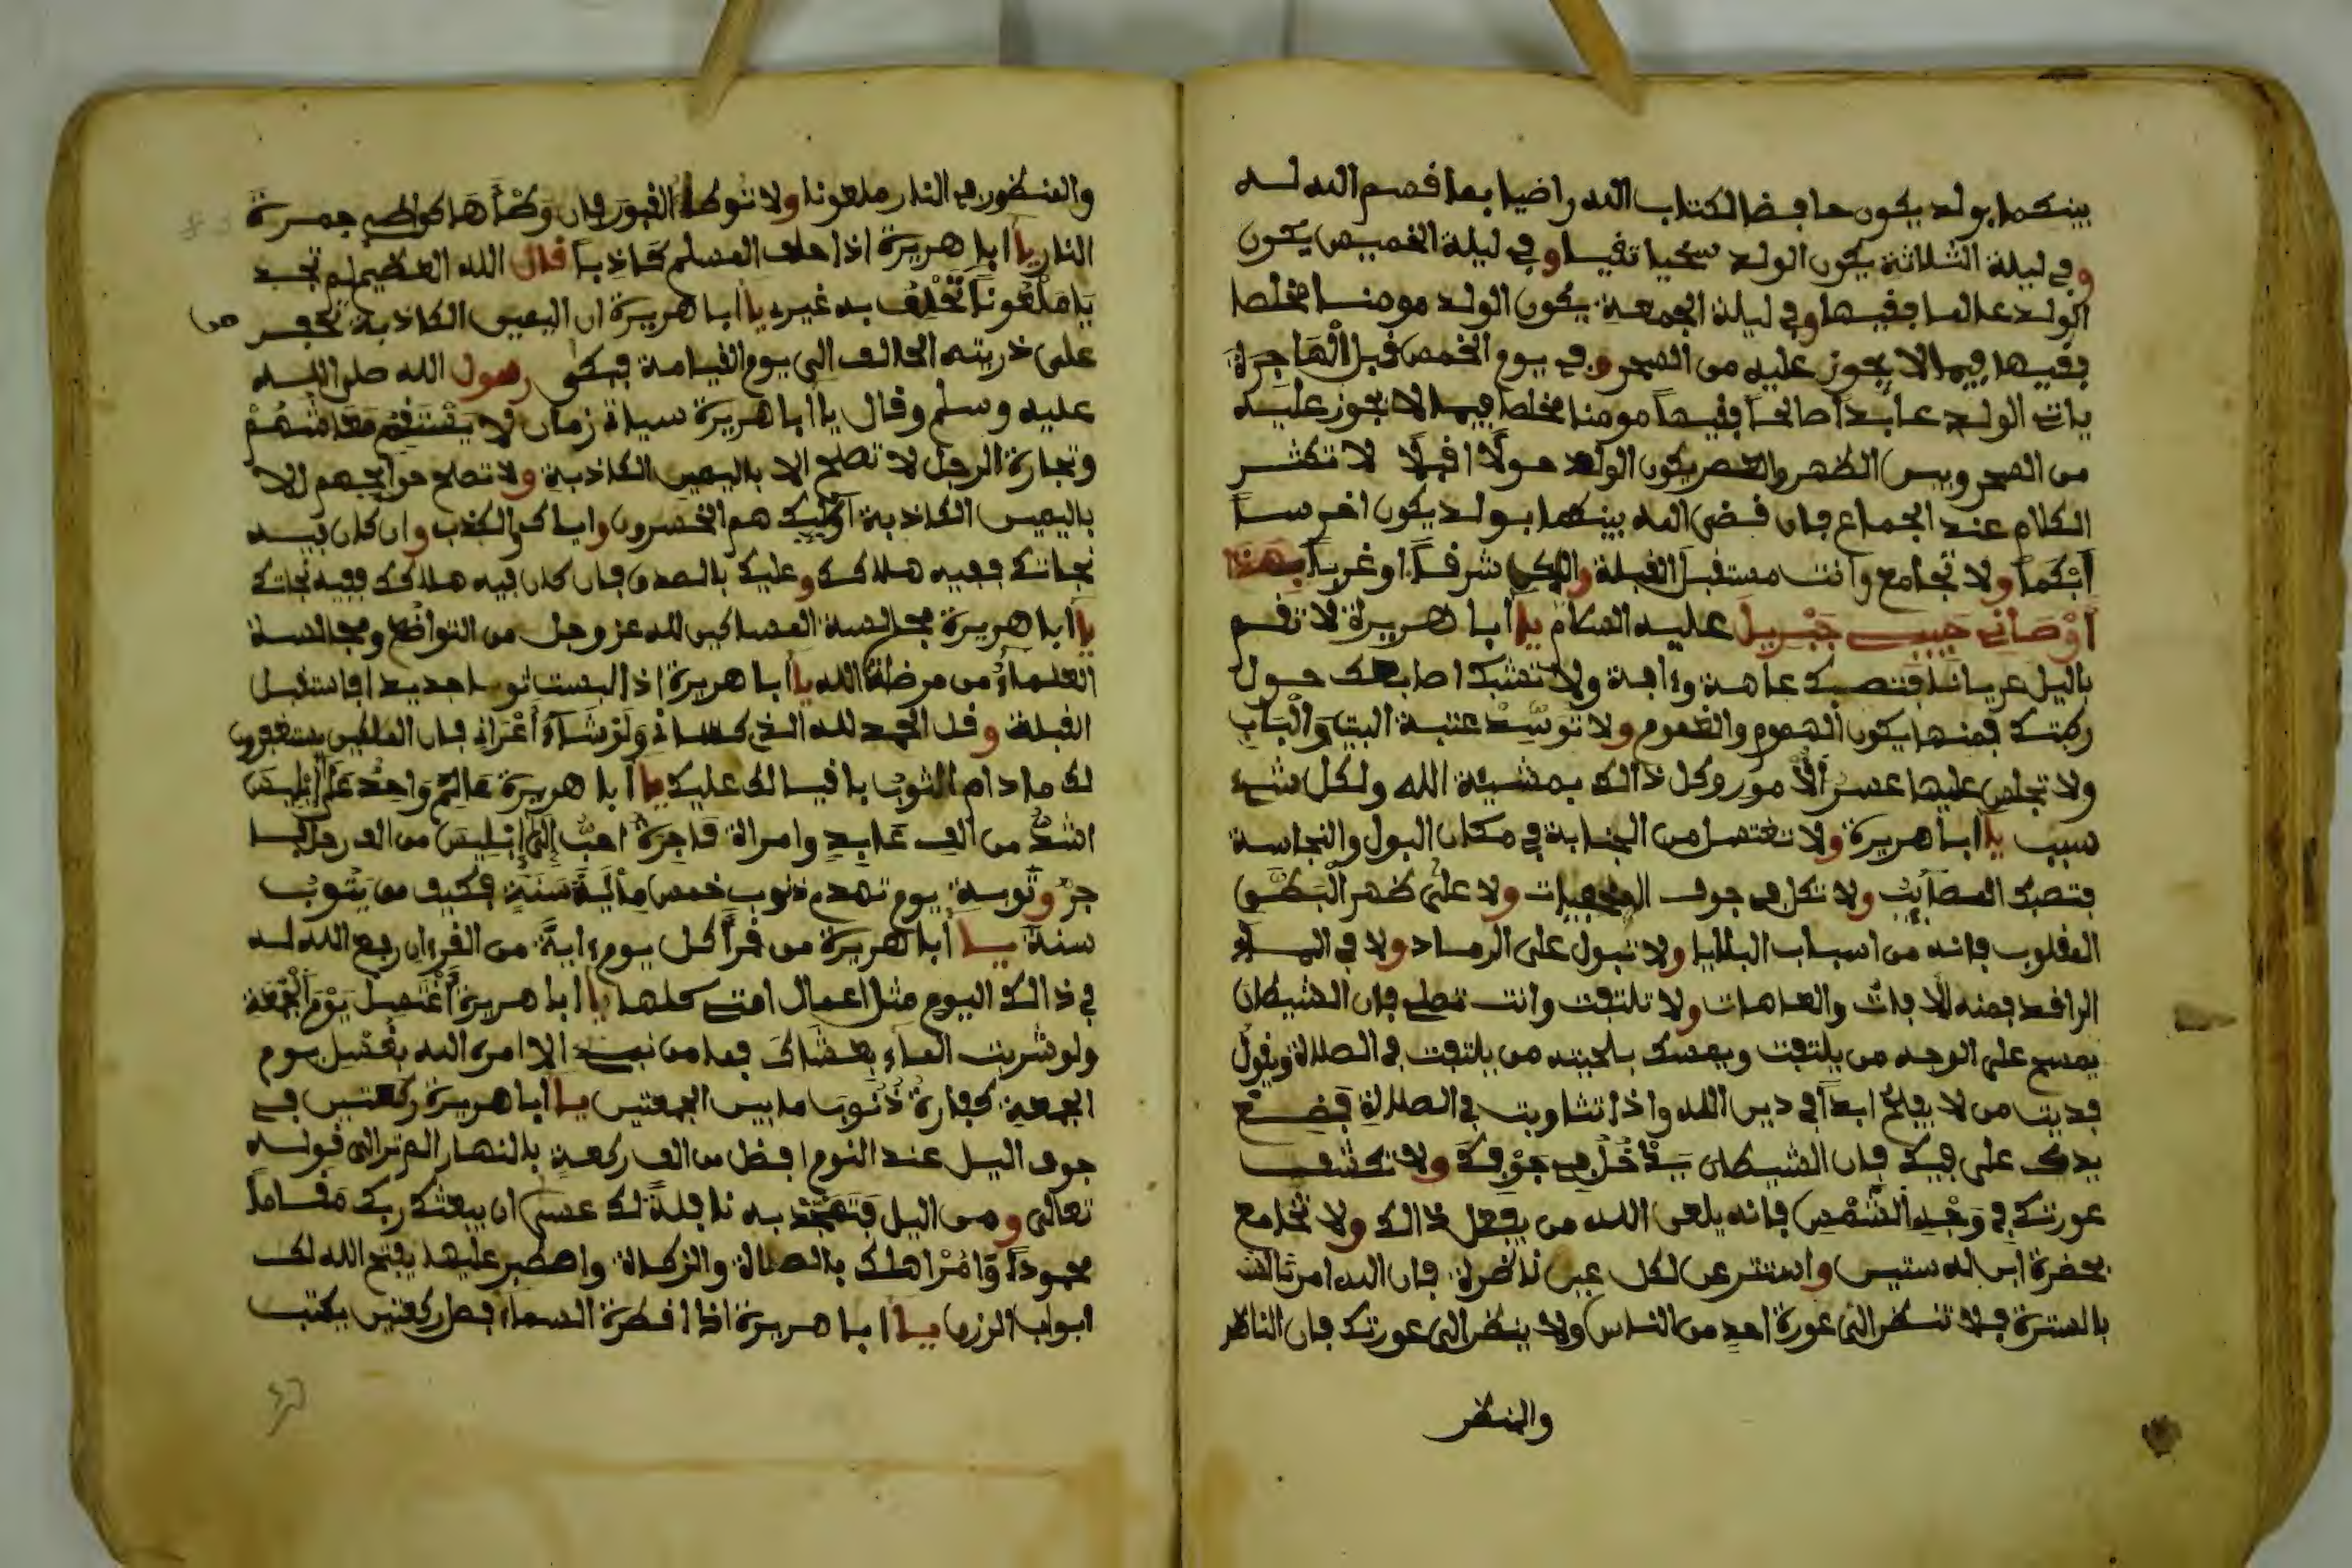 بينكما بولد يكون حافظا لكتاب الله راضيا بما قسم الله له
وفي ليلة الثلاثة يكون الولد سخيا تقيا وفي ليلة الخميس يكون
الولد عالما فقيها وفي ليلة الجمعة يكون الولد مومنا مخلصا
فقيها فيما لا يجوز عليه من السحر وفي يوم الخمس قبل الهاجرة
يات الولد عابدا صالحا فقيها مومنا مخلصا فيما لا يجوز عليه
من السحر وبين الظهر والعصر يكون الولد حولا افبلا لا تكثر
الكلام عند الجماع فان قضى الله بينكما بولد يكون اخرسا
ابكما ولا تجامع وانت مستقبل القبلة ولكن شرقا او غربا بهذا
اوصاني حبيبي جبريل عليه السلام يا ابا هريرة لا تقم
باليل عريانا فتصبك عاهة وءافة ولا تشبك اصابعك حول
ركبتك فمنها يكون الهموم والغموم ولا توسد عتبة البيت والباب
ولا تجلس عليها عسر الامور وكل ذالك بمشيئة الله ولكل شيء
سبب يا ابا هريرة ولا تغتسل من الجنابة في مكان البول والنجاسة
فتصبك المصائب ولا تكل في جوف ولا على ظهر
المقلوب فانه من اسباب البلايا ولا تبول على الرماد ولا في الماء
الراقد فمنه الافات والعاهات ولا تلتفت وانت تصلي فان الشيطان
يمسح على الوجه من يلتفت ويمسك بلحيته من يلتفت في الصلاة ويقول
فديت من لا يفلح ابدا في دين الله واذا تثاوبت في الصلاة فضع
يدك على فيك فان الشيطان يدخل في جوفك ولا تكشف
عورتك في وجه الشمس فانه يلعن الله من يفعل ذالك ولا تجامع
بحضرة ابن له ستين واستتر عن لكل عين ناظرة فان الله امرنا
بالسترة فلا تنظر الى عورة احد من الناس ولا ينظر الى عورتك فان الناظر
والمنظر
والمنظور في النار ملعونا ولا توطا القبور فان وطأها كواطي جمرة
النار يا ابا هريرة اذا حلف المسلم كاذبا قال الله العظيم لم تجد
يا ملعونا تحلف به غيري يا ابا هريرة ان اليمين الكاذبة تحفر
على ذريته الحالف الى يوم القيامة فبكى رسول الله صلى الله
عليه وسلم وقال يا ابا هريرة سياتي زمان لا يستقم معاشهم
وتجارة الرجل لا تصلح الا باليمين الكاذبة ولا تصلح حوايجهم الا
باليمين الكاذبة اوليك هم الخسرون واياك والكذب وان كان فيه
نجاتك ففيه هلاكك وعليك بالصدق فان كان فيه هلاكك ففيه نجاتك
يا ابا هريرة مجالسة المساكين لله عز وجل من التواضع ومجالسة
العلماء من مرضاة الله يا ابا هريرة اذا لبست ثوبا جديدا فاستقبل
القبلة وقل الحمد لله الذي كساني ولو شاء اعراني فان الملكين يستغفرون
لك ما دام الثوب باقيا لك عليك يا ابا هريرة عالم واحد على ابليس
اشد من الف عابد وامراة فاجرة احب الى ابليس من الف رجل
وتوبة يوم تهدم ذنوب خمس ماية سنة فكيف من يتوب
سنة يا ابا هريرة من قرأ كل يوم ءاية من القرءان رفع الله له
في ذالك اليوم مثل اعمال امتي كلها يا ابا هريرة اغتسل يوم الجمعة
ولو شربت الماء بعشاك فما من نبي الا امره الله بغسل يوم
الجمعة كفارة ذنوب ما بين الجمعتين يا ابا هريرة ركعتين في
جوف اليل عند النوم افضل من الف ركعة بالنهار الم تر الى قوله
تعالى ومن اليل فتهجد به نافلة لك عسى ان يبعثك ربك مقاما
محمودا وامر اهلك بالصلاة والزكاة واصطبر عليها يفتح الله لك
ابواب الرزق يا ابا هريرة اذا افطرة السماء فصل ركعتين يكتب